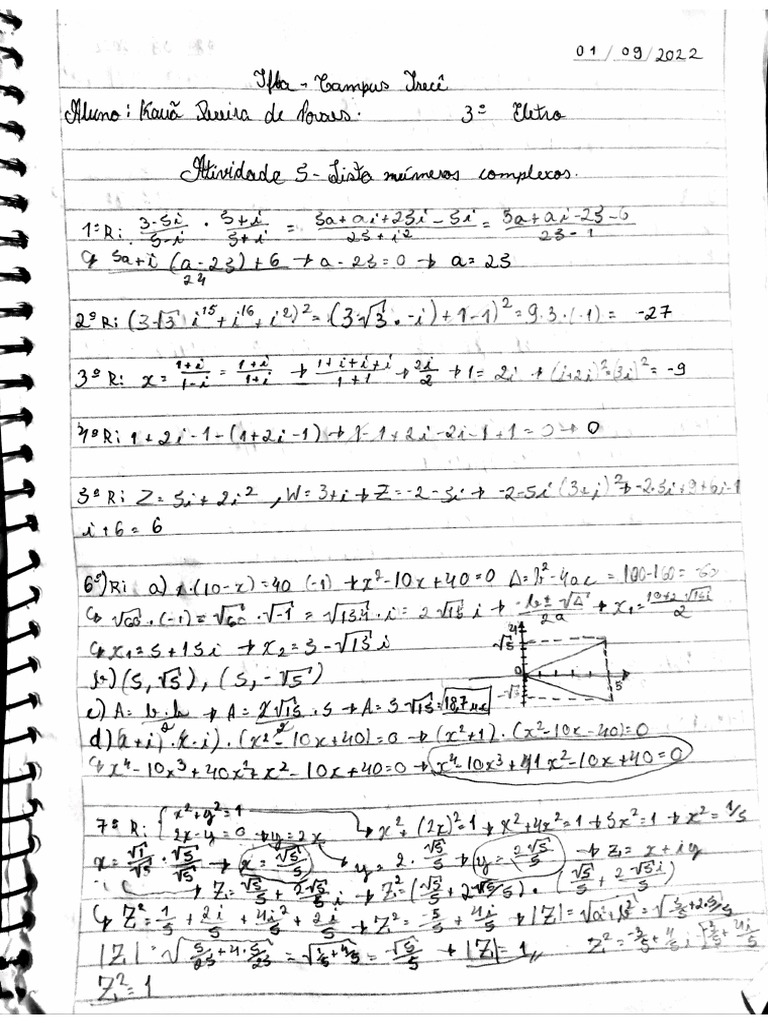 01/09/2022
Ifba - Campus Irecê
Aluno: Kauã Pereira de 3º Eletro
Atividade 5 - Lista números complexos.
1ºR: (3-5i)/(5-i) · (5+i)/(5+i) = (5a+ai+25i-5i)/(25+i²) = (5a+ai-25-6)/(25-1)
↳ (5a+i(a-25)+6)/24 → a-25=0 → a=25
2ºR: (3√3 i¹⁵+i¹⁶+i²)² = (3√3·-i)+1-1)² = 9·3·(-1) = -27
3ºR: x = (1+i)/(1-i) = (1+i)/(1+i) → (1+i+i+i)/(1+1) → 2i/2 → 1 = 2i → (i+2i)²=(3i)² = -9
4ºR: 1+2i-1-(1+2i-1) → 1-1+2i-2i-1+1=0 → 0
5ºR: Z=5i+2i², W=3+i → Z=-2-5i → -2-5i(3+i)² → -2·5i+9+6i-1
i+6=6
6º)R: a) x·(10-x)=40 (-1) → x²-10x+40=0 Δ=b²-4ac = 100-160=-60
↳ √60·(-1) = √60·√-1 = √15·4·i = 2√15 i → (-b±√Δ)/2a → x₁=(10+2√15i)/2
↳ x₁=5+15i → x₂=5-√15i
b) (5,√5), (5,-√5)
√5
0
5
c) A=b·h/2 → A=2√15·5/2 → A=5√15=18,7
d) (x+i)·(x-i)·(x²-10x+40)=0 → (x²+1)·(x²-10x-40)=0
↳ x⁴-10x³+40x²+x²-10x+40=0 → x⁴-10x³+41x²-10x+40=0
7º R: {x²+y²=1
2x-y=0 → y=2x → x²+(2x)²=1 → x²+4x²=1 → 5x²=1 → x²=1/5
x=√1/√5·√5/√5 → x=√5/5 → y=2·√5/5 → y=2√5/5 → z₁=x+iy
→ Z₁=√5/5+2√5/5 i → Z₁²=(√5/5+2√5/5)·(√5/5+2√5i/5)
↳ Z²=1/5+2i/5+4i²/5+2i/5 → Z²=-3/5+4i/5 → |Z|=√a²+b²=√5/5+2·5/5
|Z|=√5/25+4·5/25=√1/5+4/5=√5/5 → |Z|=1 Z₁²=-3/5+4/5i
Z₁²=1